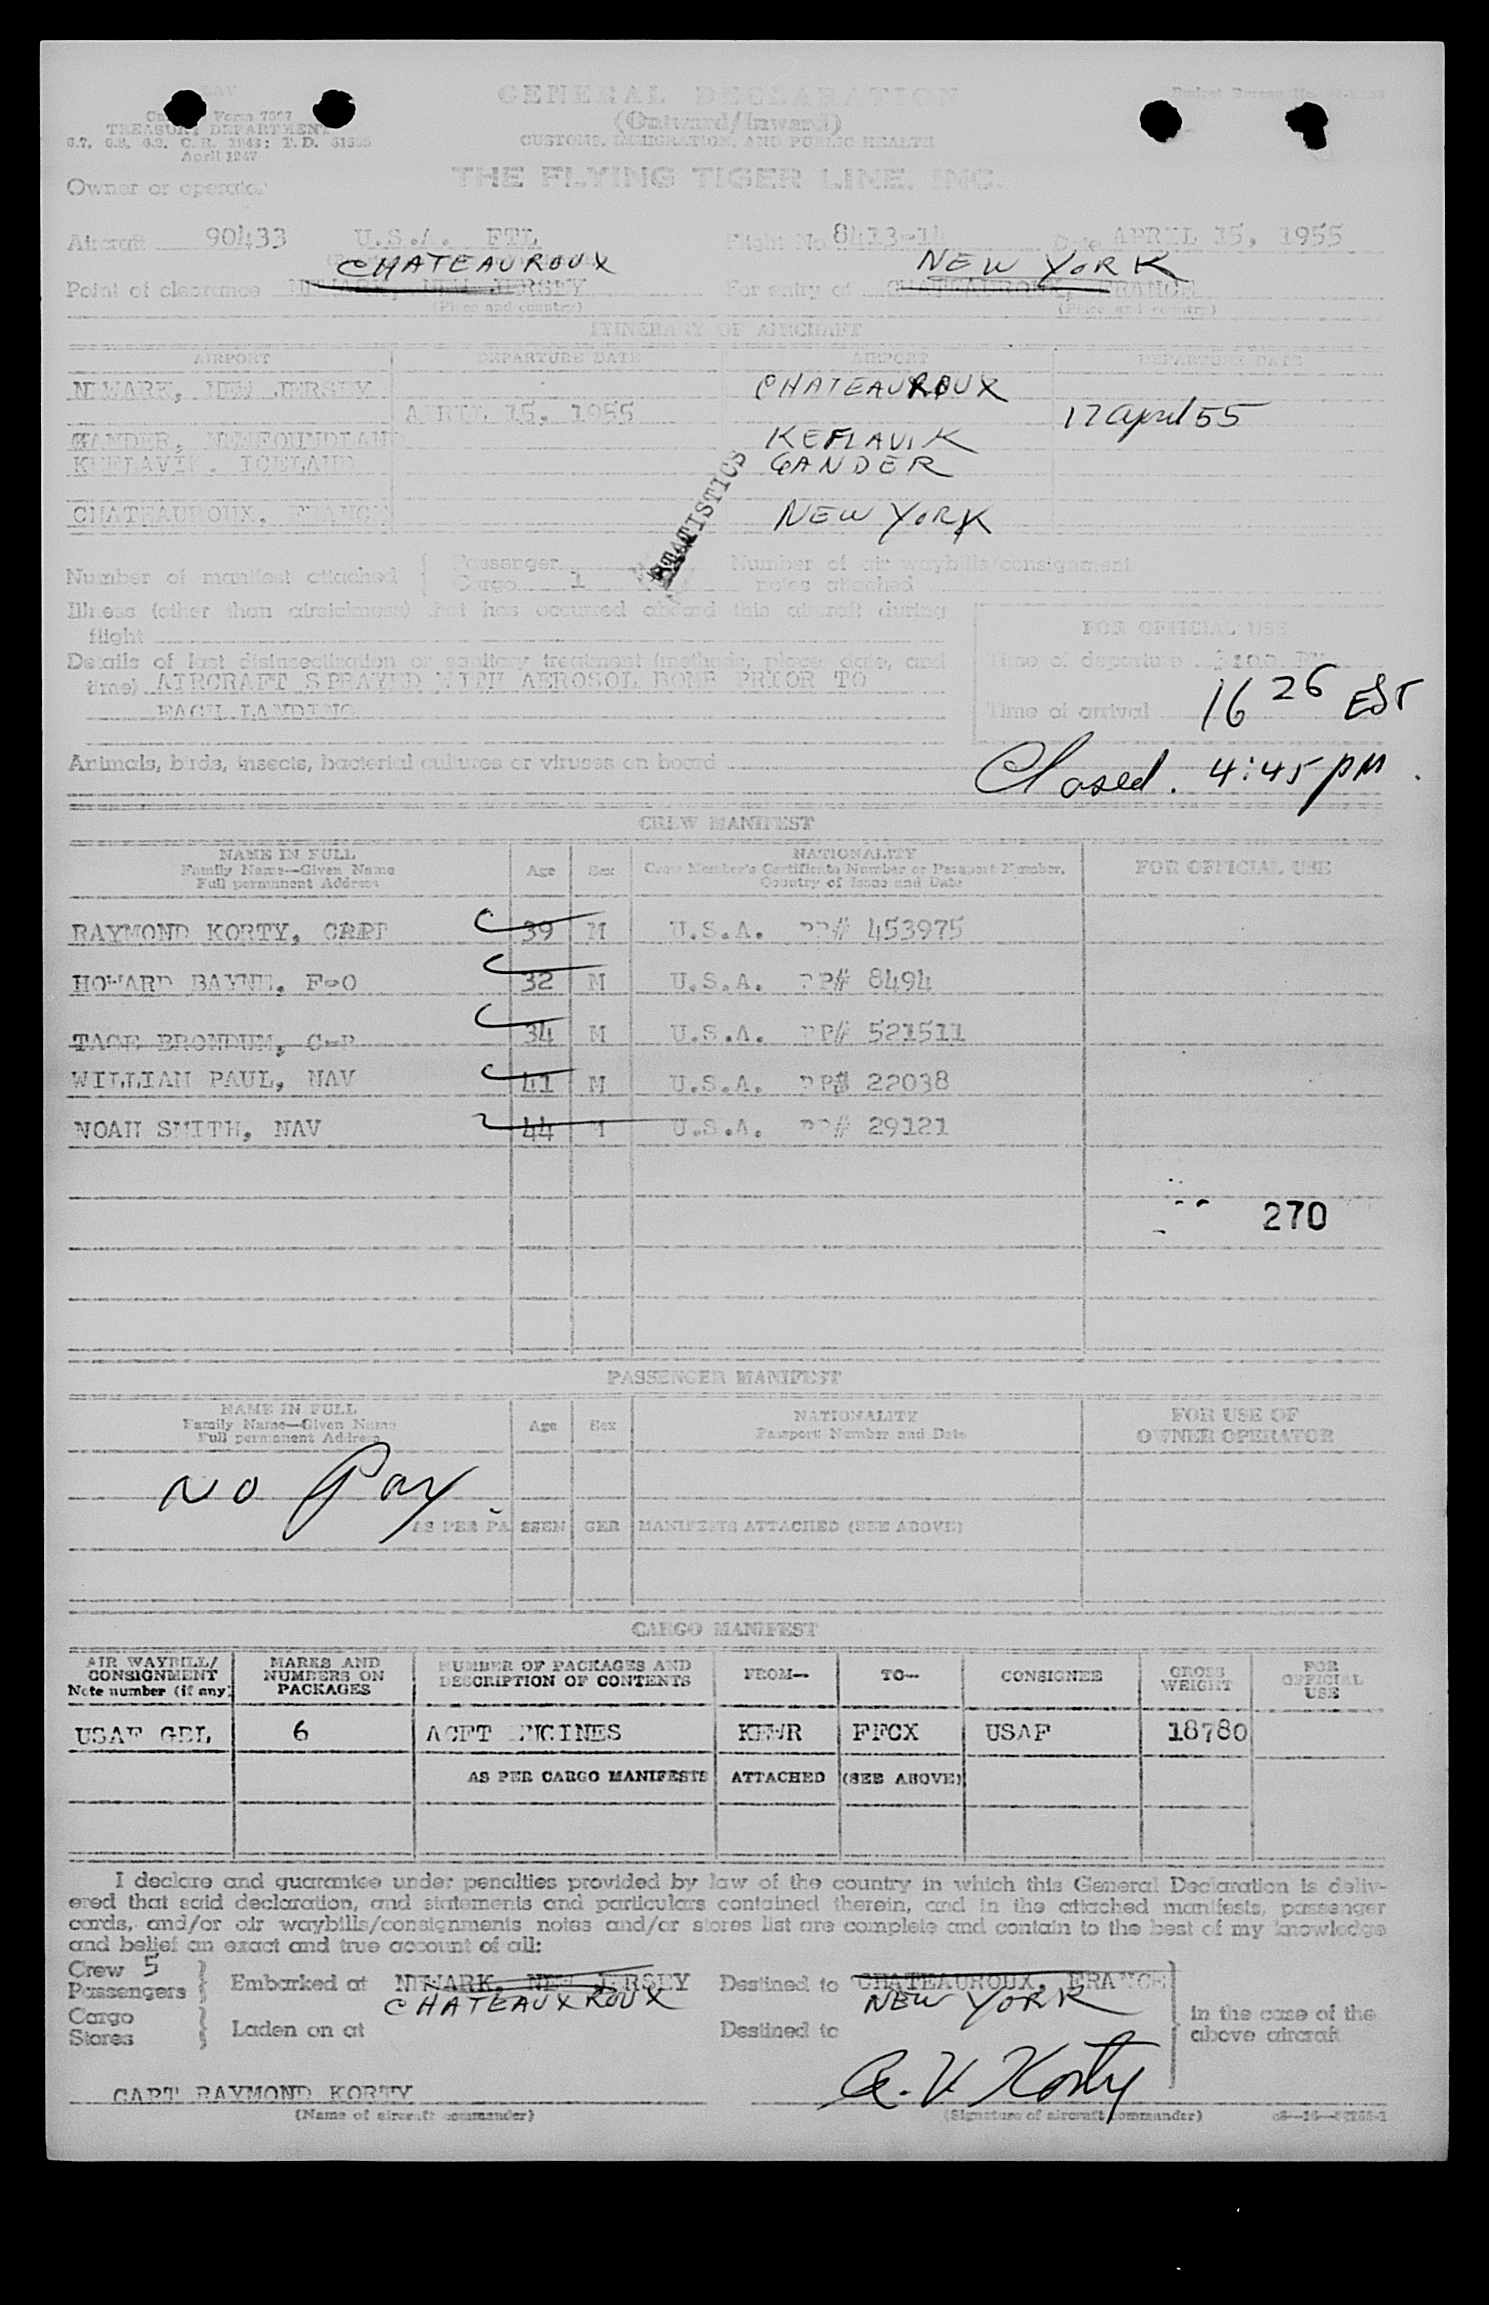 GENERAL DECLARATION
(Outward/Inward)
CUSTOMS, IMMIGRATION, AND PUBLIC HEALTH
Form 7507
TREASURY DEPARTMENT
April 1947
THE FLYING TIGER LINE, INC.
Owner or operator
Aircraft 90433 U.S.A. FTL Flight No. 8413-14 Date APRIL 15, 1955
CHATEAUROUX NEW YORK
Point of clearance NEWARK, NEW JERSEY For entry of CHATEAUROUX, FRANCE
(Place and country) (Place and country)
ITINERARY OF AIRCRAFT
AIRPORT DEPARTURE DATE AIRPORT DEPARTURE DATE
NEWARK, NEW JERSEY CHATEAUROUX
APRIL 15, 1955 17 april 55
GANDER, NEWFOUNDLAND KEFLAVIK
KEFLAVIK, ICELAND GANDER
CHATEAUROUX, FRANCE NEW YORK
STATISTICS
Number of manifest attached { Passenger Number of air waybills/consignment
Cargo 1 notes attached
Illness (other than airsickness) that has occurred aboard this aircraft during
flight
FOR OFFICIAL USE
Details of last disinsectization or sanitary treatment (methods, place, date, and
time) AIRCRAFT SPRAYED WITH AEROSOL BOMB PRIOR TO
EACH LANDING
Time of departure
Time of arrival 16 26 EST
Animals, birds, insects, bacterial cultures or viruses on board
Closed. 4:45 PM.
CREW MANIFEST
NAME IN FULL
Family Name—Given Name
Full permanent Address
Age Sex
NATIONALITY
Crew Member's Certificate Number or Passport Number,
Country of Issue and Date
FOR OFFICIAL USE
RAYMOND KORTY, CAPT 39 M U.S.A. PP# 453975
HOWARD BAYNE, F-O 32 M U.S.A. PP# 8494
TAGE BRONDUM, C-P 34 M U.S.A. PP# 521511
WILLIAM PAUL, NAV 41 M U.S.A. PP# 22038
NOAH SMITH, NAV 44 M U.S.A. PP# 29121
270
PASSENGER MANIFEST
NAME IN FULL
Family Name—Given Name
Full permanent Address
Age Sex
NATIONALITY
Passport Number and Date
FOR USE OF
OWNER OPERATOR
NO Pax.
AS PER PASSENGER MANIFESTS ATTACHED (SEE ABOVE)
CARGO MANIFEST
AIR WAYBILL/
CONSIGNMENT
Note number (if any)
MARKS AND
NUMBERS ON
PACKAGES
NUMBER OF PACKAGES AND
DESCRIPTION OF CONTENTS
FROM— TO— CONSIGNEE
GROSS
WEIGHT
FOR
OFFICIAL
USE
USAF GBL 6 ACFT ENGINES KEWR FFCX USAF 18780
AS PER CARGO MANIFESTS ATTACHED (SEE ABOVE)
I declare and guarantee under penalties provided by law of the country in which this General Declaration is deliv-
ered that said declaration, and statements and particulars contained therein, and in the attached manifests, passenger
cards, and/or air waybills/consignments notes and/or stores list are complete and contain to the best of my knowledge
and belief an exact and true account of all:
Crew 5
Passengers } Embarked at NEWARK, NEW JERSEY Destined to CHATEAUROUX, FRANCE
CHATEAUXROUX NEW YORK
Cargo
Stores } Laden on at Destined to
in the case of the
above aircraft
CAPT RAYMOND KORTY R. V Korty
(Name of aircraft commander) (Signature of aircraft commander)